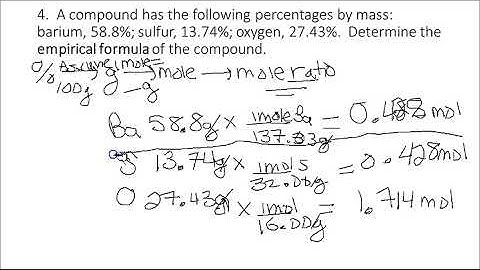 4. A compound has the following percentages by mass:
barium, 58.8%; sulfur, 13.74%; oxygen, 27.43%. Determine the
empirical formula of the compound.
% Assume 100g → g 1mole/g → mole → mole ratio
Ba 58.8g × 1mole Ba / 137.33g = 0.428 mol
S 13.74g × 1mol S / 32.00g = 0.428 mol
O 27.43g × 1mol / 16.00g = 1.714 mol